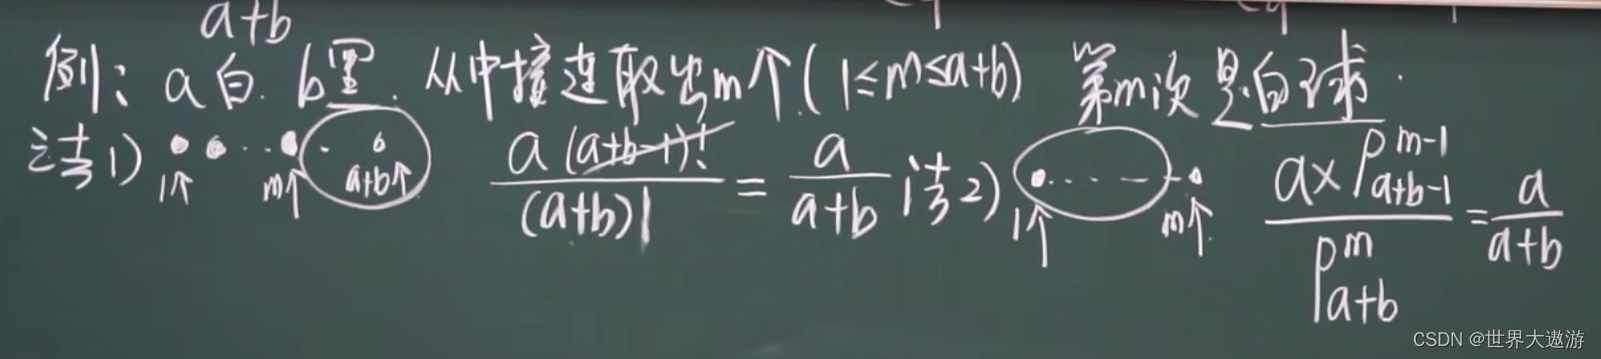 a+b
例: a白. b黑. 从中接连取出m个(1≤m≤a+b) 第m次是白球.
法1) 1个 m个 a+b个 a(a+b-1)! / (a+b)! = a / a+b 法2) 1个 m个 a×P^{m-1}_{a+b-1} / P^m_{a+b} = a / a+b
CSDN @世界大遨游